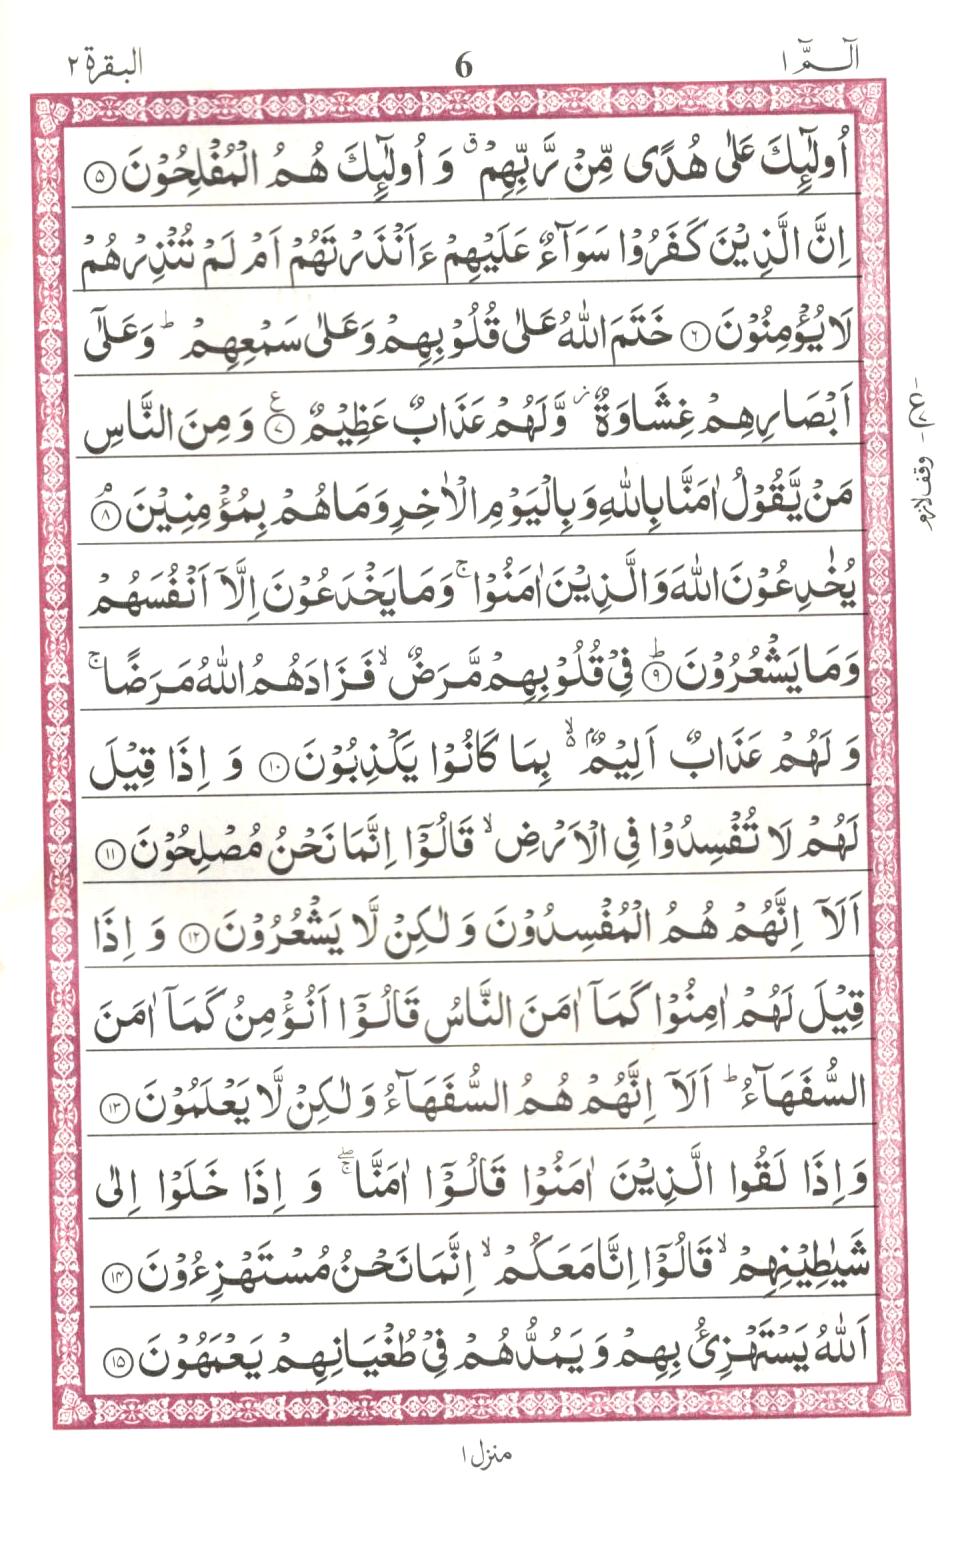 الٓـمّٓ ١
6
البقرة ٢
اُولٰٓئِكَ عَلٰى هُدًى مِّنْ رَّبِّهِمْ ۚ وَ اُولٰٓئِكَ هُمُ الْمُفْلِحُوْنَ ۝٥
اِنَّ الَّذِيْنَ كَفَرُوْا سَوَآءٌ عَلَيْهِمْ ءَاَنْذَرْتَهُمْ اَمْ لَمْ تُنْذِرْهُمْ
لَا يُؤْمِنُوْنَ ۝٦ خَتَمَ اللّٰهُ عَلٰى قُلُوْبِهِمْ وَعَلٰى سَمْعِهِمْ ؕ وَعَلٰٓى
اَبْصَارِهِمْ غِشَاوَةٌ ز وَّلَهُمْ عَذَابٌ عَظِيْمٌ ۝٧ ع وَمِنَ النَّاسِ
مَنْ يَّقُوْلُ اٰمَنَّا بِاللّٰهِ وَبِالْيَوْمِ الْاٰخِرِ وَمَا هُمْ بِمُؤْمِنِيْنَ ۝٨ۘ
يُخٰدِعُوْنَ اللّٰهَ وَالَّذِيْنَ اٰمَنُوْا ۚ وَمَا يَخْدَعُوْنَ اِلَّآ اَنْفُسَهُمْ
وَمَا يَشْعُرُوْنَ ۝٩ؕ فِيْ قُلُوْبِهِمْ مَّرَضٌ ۙ فَزَادَهُمُ اللّٰهُ مَرَضًا ۚ
وَ لَهُمْ عَذَابٌ اَلِيْمٌۢ ۙ بِمَا كَانُوْا يَكْذِبُوْنَ ۝١٠ وَ اِذَا قِيْلَ
لَهُمْ لَا تُفْسِدُوْا فِى الْاَرْضِ ۙ قَالُوْٓا اِنَّمَا نَحْنُ مُصْلِحُوْنَ ۝١١
اَلَآ اِنَّهُمْ هُمُ الْمُفْسِدُوْنَ وَ لٰكِنْ لَّا يَشْعُرُوْنَ ۝١٢ وَ اِذَا
قِيْلَ لَهُمْ اٰمِنُوْا كَمَآ اٰمَنَ النَّاسُ قَالُوْٓا اَنُؤْمِنُ كَمَآ اٰمَنَ
السُّفَهَآءُ ؕ اَلَآ اِنَّهُمْ هُمُ السُّفَهَآءُ وَ لٰكِنْ لَّا يَعْلَمُوْنَ ۝١٣
وَ اِذَا لَقُوا الَّذِيْنَ اٰمَنُوْا قَالُوْٓا اٰمَنَّا ۚۖ وَ اِذَا خَلَوْا اِلٰى
شَيٰطِيْنِهِمْ ۙ قَالُوْٓا اِنَّا مَعَكُمْ ۙ اِنَّمَا نَحْنُ مُسْتَهْزِءُوْنَ ۝١٤
اَللّٰهُ يَسْتَهْزِئُ بِهِمْ وَ يَمُدُّهُمْ فِيْ طُغْيَانِهِمْ يَعْمَهُوْنَ ۝١٥
ع
وقف لازم
منزل ١